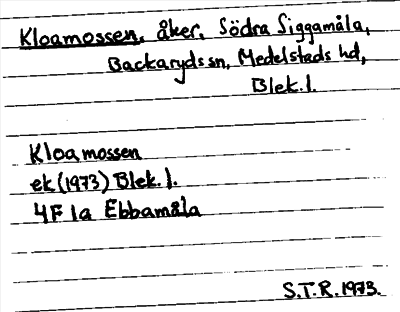 Kloamossen, åker, Södra Siggamåla,
Backaryds sn, Medelstads hd,
Blek.l.
Kloamossen
ek (1973) Blek.l.
4F 1a Ebbamåla
S.T.R. 1973.